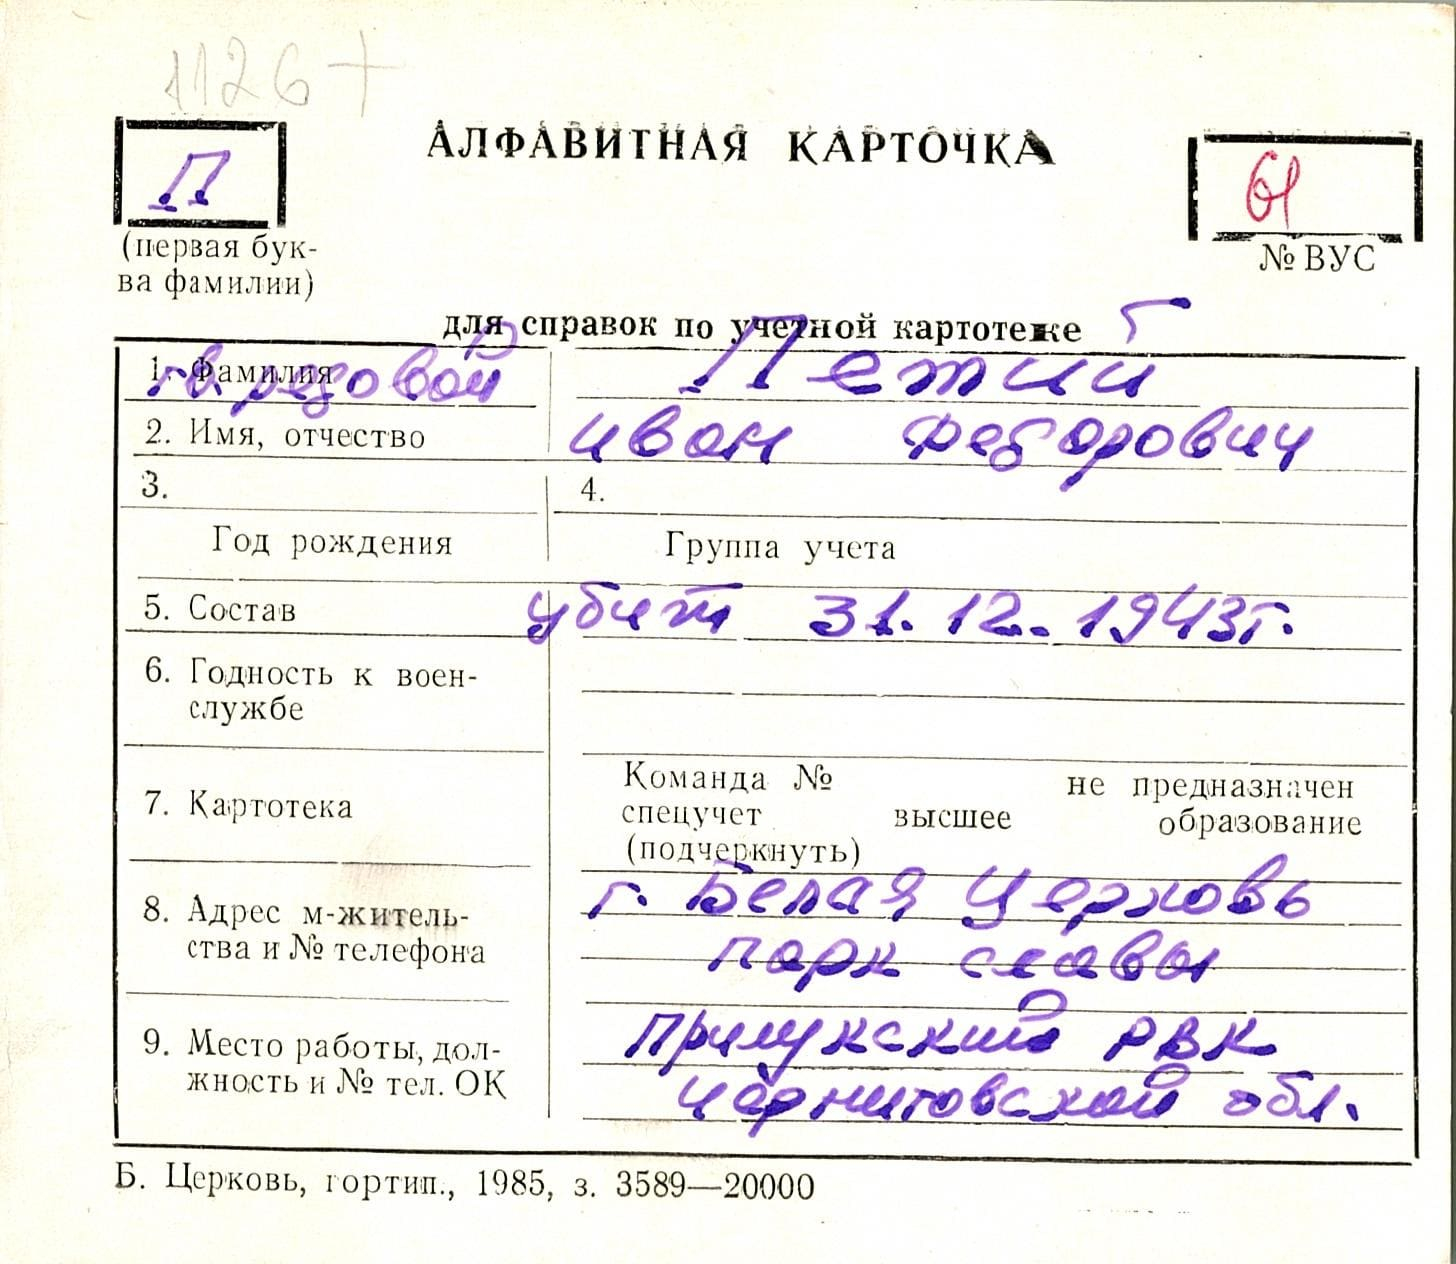 1126 +
П
АЛФАВИТНАЯ КАРТОЧКА
61
(первая бук-
ва фамилии)
№ ВУС
для справок по учетной картотеке
1. Фамилия
гв. рядовой
Петий
2. Имя, отчество
Иван Федорович
3.
4.
Год рождения
Группа учета
5. Состав
убит 31.12.1943г.
6. Годность к воен-
службе
7. Картотека
Команда № не предназначен
спецучет высшее образование
(подчеркнуть)
8. Адрес м-житель-
ства и № телефона
г. Белая Церковь
парк славы
9. Место работы, дол-
жность и № тел. ОК
Прилукский РВК
Черниговской обл.
Б. Церковь, гортип., 1985, з. 3589—20000